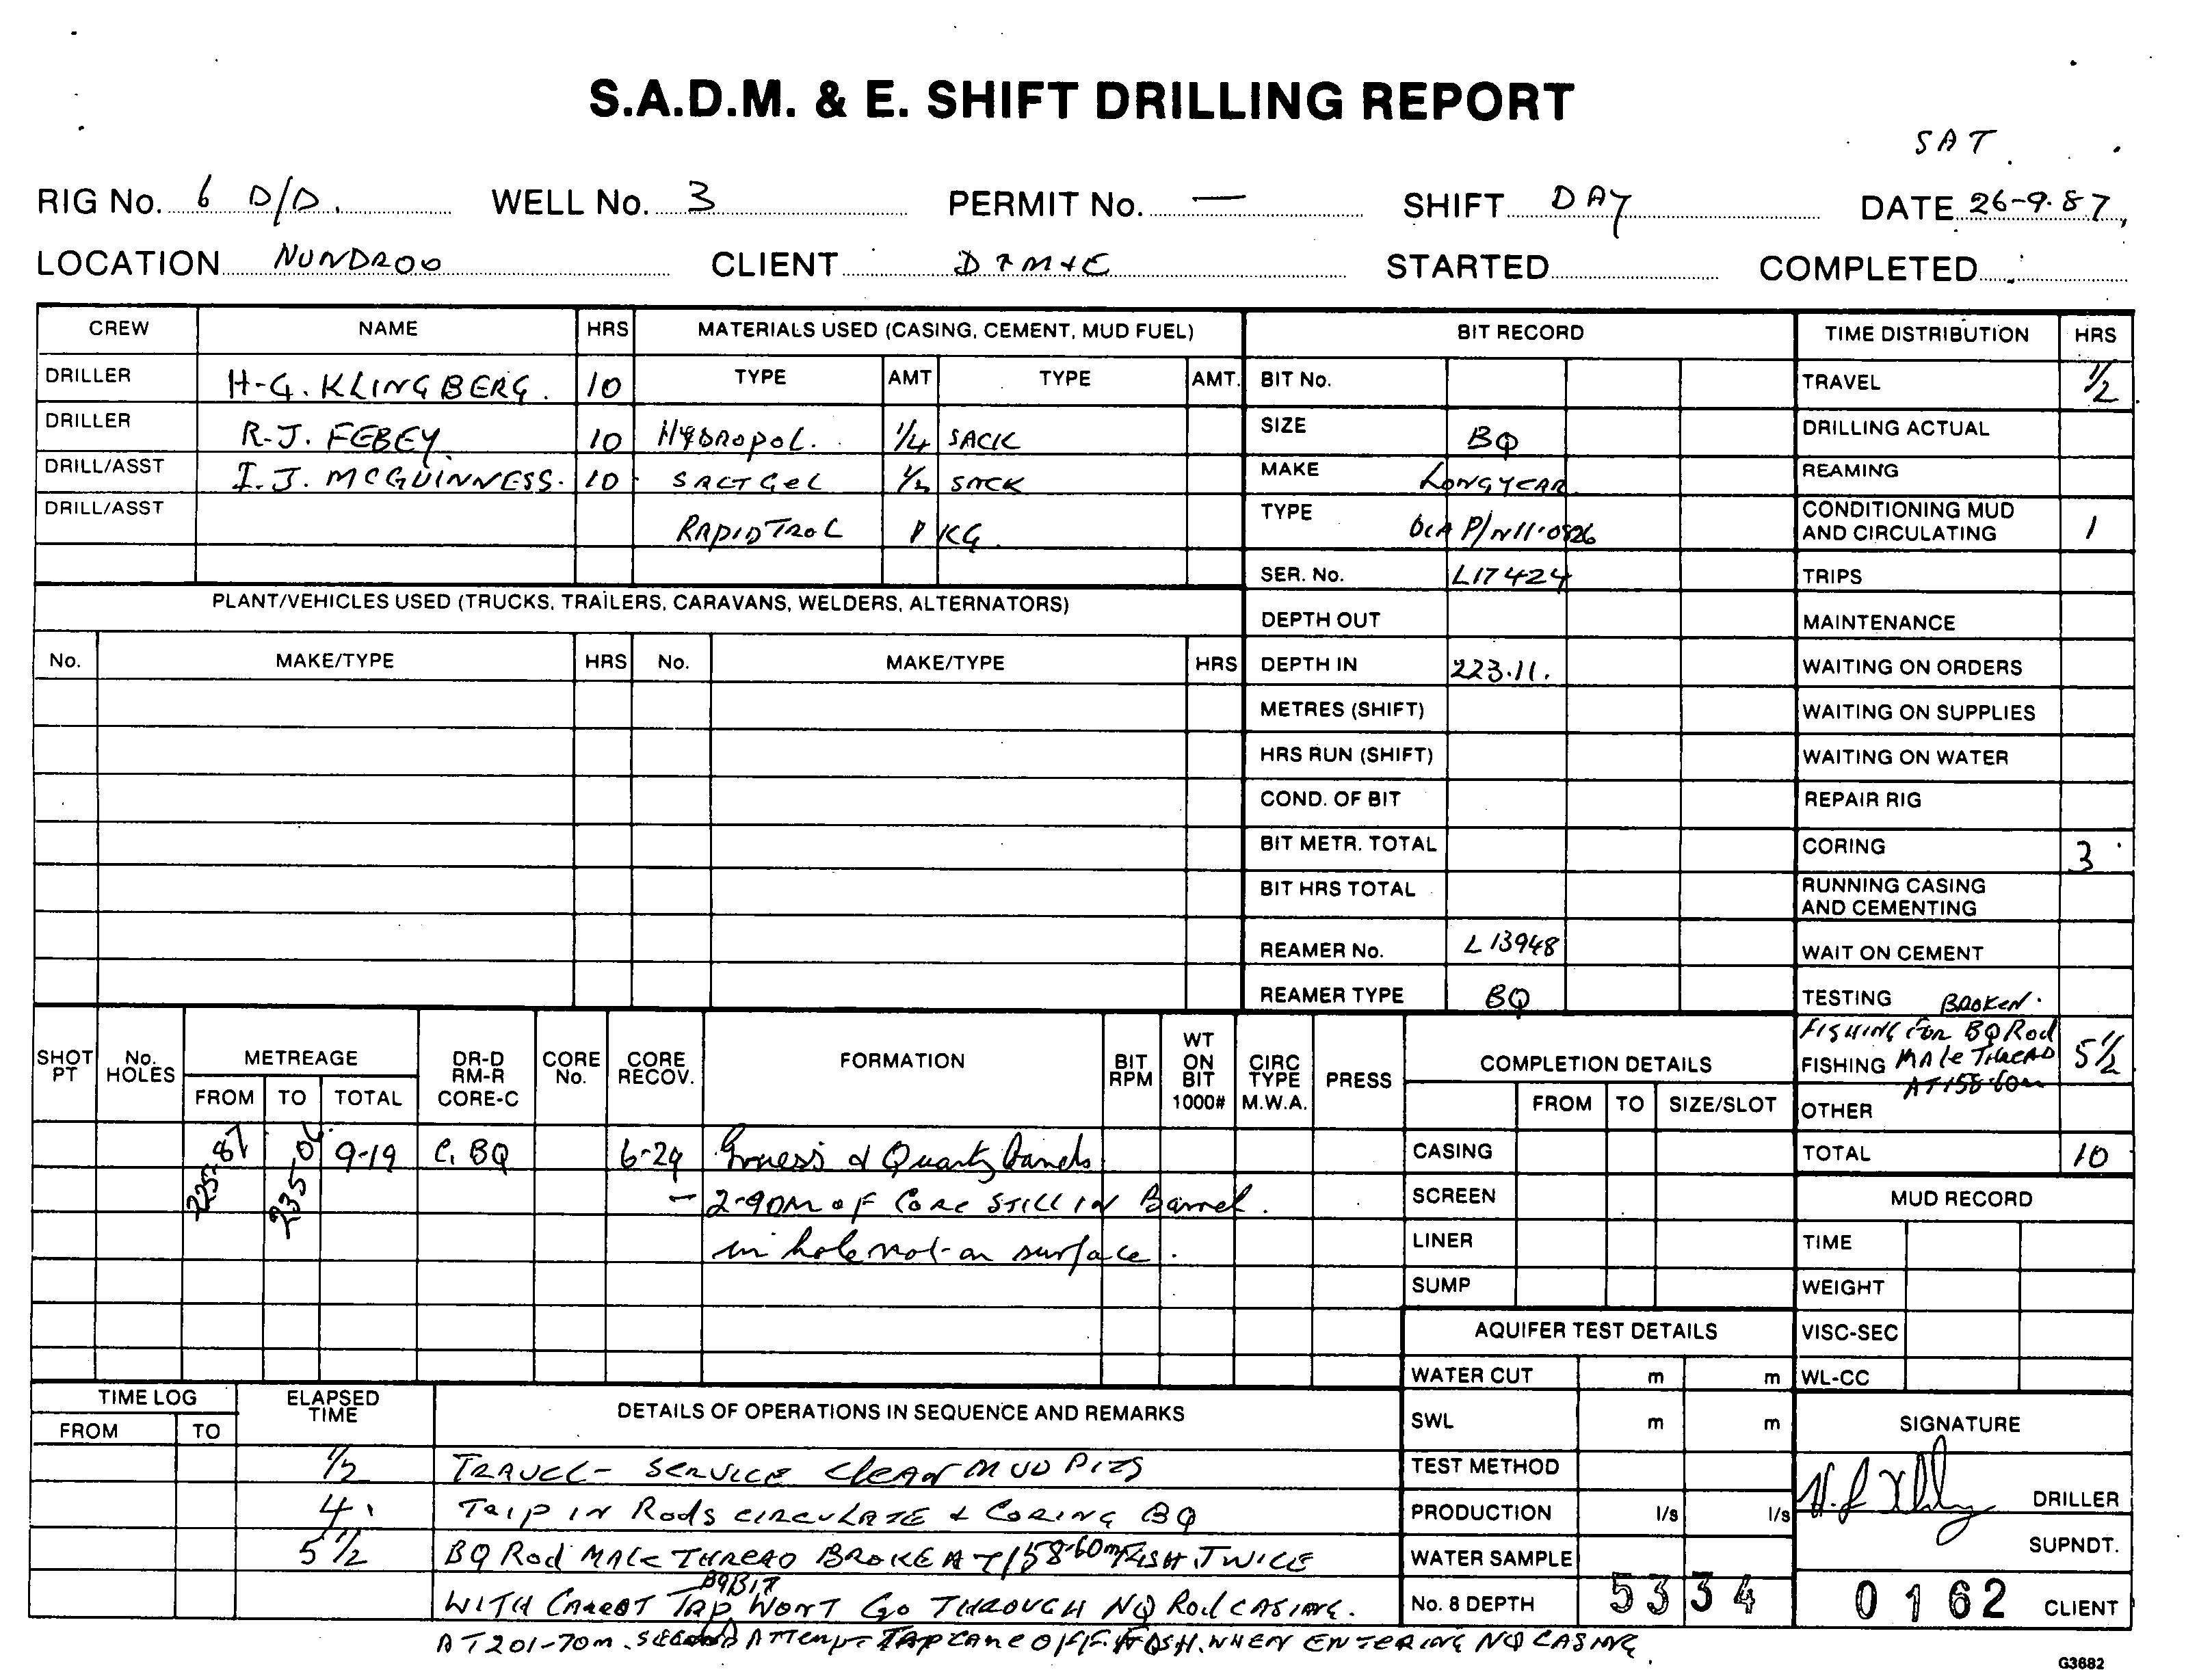 S.A.D.M. & E. SHIFT DRILLING REPORT
SAT
RIG No. 6 D/D. WELL No. 3 PERMIT No. — SHIFT DAY DATE 26-9-87
LOCATION NUNDROO CLIENT STARTED COMPLETED
CREW NAME HRS MATERIALS USED (CASING, CEMENT, MUD FUEL) BIT RECORD TIME DISTRIBUTION HRS
DRILLER H-G. KLINGBERG. 10 TYPE AMT TYPE AMT. BIT No. TRAVEL 1/2
DRILLER R-J. FEBEY 10 HYDROPOL. 1/4 SACK SIZE BQ DRILLING ACTUAL
DRILL/ASST I. J. MCGUINNESS. 10 SALT GEL 1/2 SACK MAKE LONGYEAR REAMING
DRILL/ASST RAPIDTROL 1 KG TYPE DIA P/N 11.0526 CONDITIONING MUD AND CIRCULATING 1
SER. No. L17424 TRIPS
PLANT/VEHICLES USED (TRUCKS, TRAILERS, CARAVANS, WELDERS, ALTERNATORS)
DEPTH OUT MAINTENANCE
No. MAKE/TYPE HRS No. MAKE/TYPE HRS DEPTH IN 223.11. WAITING ON ORDERS
METRES (SHIFT) WAITING ON SUPPLIES
HRS RUN (SHIFT) WAITING ON WATER
COND. OF BIT REPAIR RIG
BIT METR. TOTAL CORING 3
BIT HRS TOTAL RUNNING CASING AND CEMENTING
REAMER No. L 13948 WAIT ON CEMENT
REAMER TYPE BQ TESTING BROKEN.
FISHING FOR BQ Rod
SHOT PT No. HOLES METREAGE DR-D RM-R CORE-C CORE No. CORE RECOV. FORMATION BIT RPM WT ON BIT 1000# CIRC TYPE M.W.A. PRESS COMPLETION DETAILS FISHING MALE THREAD 5 1/2
AT 158.60m
FROM TO TOTAL FROM TO SIZE/SLOT OTHER
225-87 235-06 9-19 C, BQ 6-29 Gneiss & Quartz bands CASING TOTAL 10
- 2-90M OF CORE STILL IN Barrel. SCREEN MUD RECORD
in hole not on surface. LINER TIME
SUMP WEIGHT
AQUIFER TEST DETAILS VISC-SEC
WATER CUT m m WL-CC
TIME LOG ELAPSED TIME DETAILS OF OPERATIONS IN SEQUENCE AND REMARKS SWL m m SIGNATURE
FROM TO
1/2 TRAVEL - SERVICE CLEAN MUD PITS TEST METHOD
4. TRIP IN Rods CIRCULATE & CORING BQ PRODUCTION l/s l/s DRILLER
5 1/2 BQ Rod MALE THREAD BROKE AT 158.60m FISH TWICE WATER SAMPLE SUPNDT.
BQ BIT
WITH CARROT TAP WONT GO THROUGH NQ Rod CASING. No. 8 DEPTH 5334 0162 CLIENT
AT 201-70m. SECOND ATTEMPT TAP CAME OFF FISH. WHEN ENTERING NQ CASING.
G3682